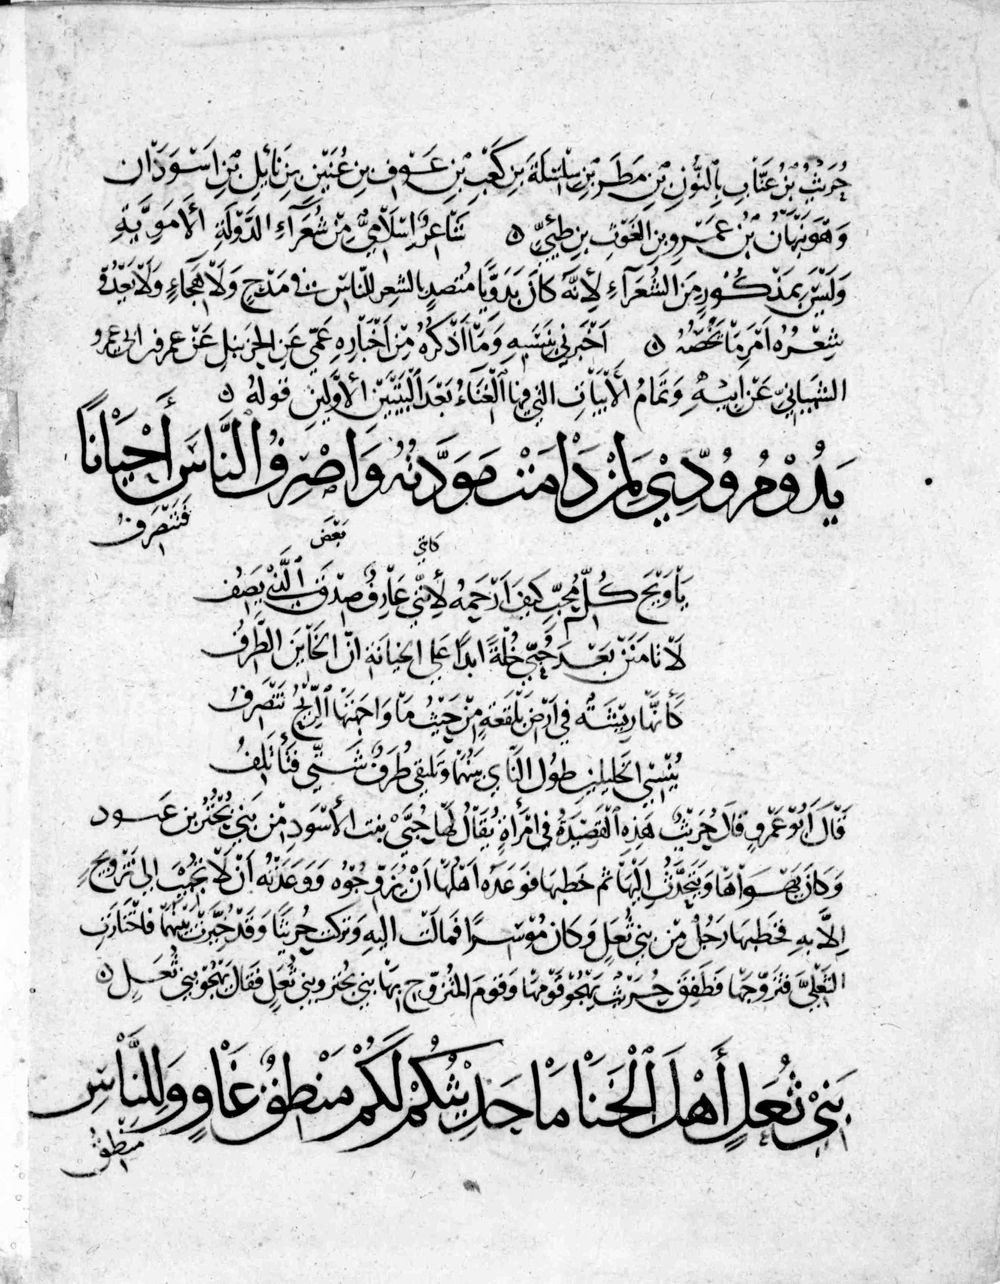 حُرَيْثُ بْنُ عَنَّابٍ بِالنُّونِ بْنِ مَطَرِ بْنِ سِلْسِلَةَ بْنِ كَعْبِ بْنِ عَوْفِ بْنِ عُنَيْنِ بْنِ نَائِلِ بْنِ اَسْوَدَان
وَهُوَ نَبْهَانُ بْنُ عَمْرِو بنِ الغَوْثِ بنِ طَيِّئٍ ۝ شَاعِرٌ اِسْلَامِيٌّ مِنْ شُعَرَاءِ الدَّوْلَةِ الأَمَوِيَّةِ
وَلَيْسَ بِمَذْكُورٍ مِنَ الشُّعَرَاءِ لِأَنَّهُ كَانَ بَدَوِيًّا مُتَصَدٍّ بِالشعِر للنَّاسِ فى مَدْحٍ وَلَا هِجَاءٍ وَلَا يَعْدُو
شِعْرُه اَمْرَ مَا يَخُصُّهُ ۝ اَخْبَرَنِي بِنَسَبِهِ وَمَا اَذْكُرُهُ مِنْ اَخْبَارِهِ عَمِّي عَنِ الحَزَنْبَلِ عَنْ عمرِو بن ابى عمرو
الشيبانيّ عَنْ اَبِيْهِ وَتَمَامُ الأَبْيَاتِ التي فيها الغِنَاءُ بَعْدَ البَيْتَيْنِ الأَوَّلَينِ قولهُ ۝
يَدُوْمُ وُدِّيْ لِمَنْ دَامَتْ مَوَدَّتُهُ وَاَصْرِفُ النَّاسَ أَحْيَانًا
فَتَنْصَرِفُ
كانّي بَعْضَ
يَا وَيْحَ كُلِّ مُحِبٍّ كَيْفَ اَرْحَمُهُ لِأَنَّنِي عَارِفٌ صِدْقَ الَّذِيْ يَصِفُ
لَا تَامَنَنْ بَعْدَ حُبَّى خُلَّةً ابدًا عَلى الخيانَةِ اِنَّ الخَاينَ الطَّرِفُ
كَأَنَّهَا رِيْشَةٌ في اَرْضِ بَلْقَعَةٍ مِنْ حَيْثُ مَا وَاجَهَتْهَا الرِّيْحُ تَنْصَرِفُ
يُنْسِي الخَلِيلينِ طُولُ النَّأيِ بَيْنَهُمَا وَتَلتقي طُرَفٌ شَتّى فَتَأتَلِفُ
قَالَ اَبُو عَمْرٍو قَالَ حُرَيْثٌ هَذِهِ القَصِيْدَةُ في امْرَأةٍ يُقَالُ لَهَا حُبَّى بنت الأسْوَدِ مِنْ بَنِي بُحْتُرِ بنِ عَتود
وَكانَ يَهْوَاهَا وَيَتحدَّثُ اِلَيْهَا ثم خَطبهَا فَوَعَدَه اَهْلُهَا اَنْ يُزَوِّجُوْهُ وَوَعَدَتْه اَنْ لَا تُجِيْبَ الى تَزْوِيجٍ
اِلَّا بِهِ فَخَطبهَا رَجُلٌ مِنْ بَنِي ثُعَلٍ وَكَان مُوْسِرًا فَمالت اليه وتركت حُرَيْثًا وَقَدْ خُيِّرَتْ بَيْنَهُمَا فَاخْتَارَتِ
الثُعَليَّ فَتَزَوَّجَهَا فَطَفِقَ حُرَيْثٌ يَهْجُو قَوْمهَا وَقَومَ المُتَزَوِّجِ بهَا بَنِي بُحتر وبني ثُعَلٍ فَقَالَ يَهْجُو بَنِي ثُعَلٍ ۝
بَنِيْ ثُعَلٍ أَهْلَ الْخَنَا مَا حَدِيْثُكُمْ لَكُمْ مَنْطِقٌ غَاوٍ وَلِلنَّاسِ
مَنْطِقُ